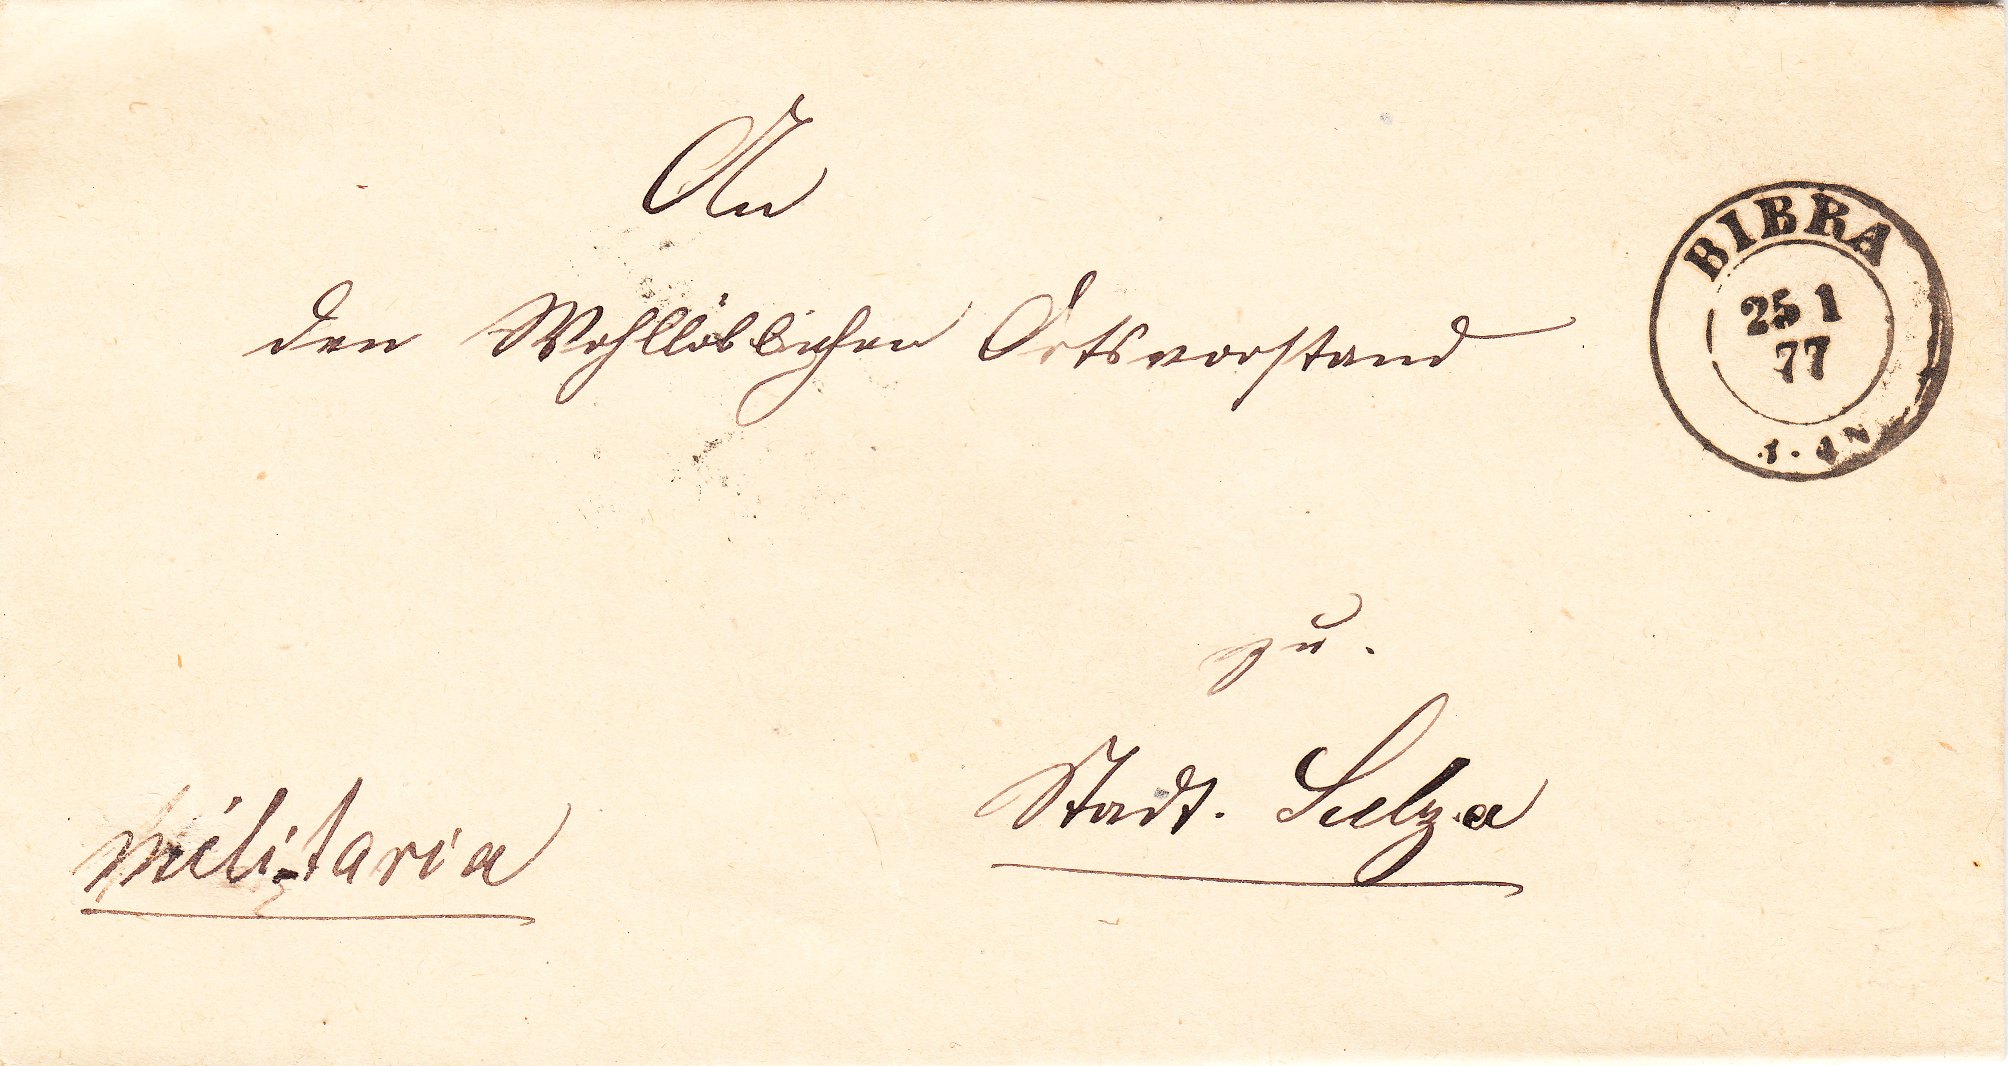 An
den Wohllöblichen Ortsvorstand
BIBRA
25 1
77
zu.
Stadt. Sulza
militaria